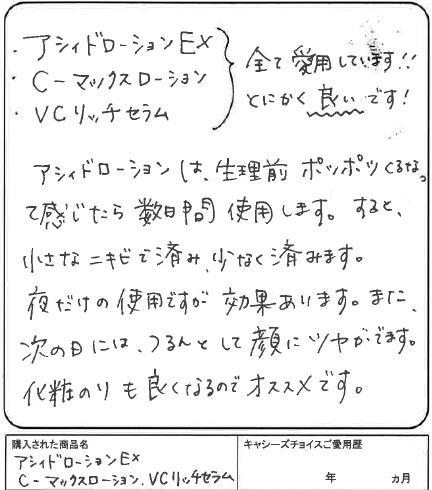 ・アシィドローションEX
・C-マックスローション
・VCリッチセラム
全て愛用しています!!
とにかく良いです!
アシィドローションは、生理前 ポツポツくるなっ
て感じたら数日間 使用します。すると、
小さなニキビで済み、少なく済みます。
夜だけの使用ですが 効果あります。また、
次の日には、つるんとして顔にツヤがでます。
化粧のりも良くなるのでオススメです。
購入された商品名
アシィドローションEX
C-マックスローション、VCリッチセラム
キャシーズチョイスご愛用歴
年 ヵ月